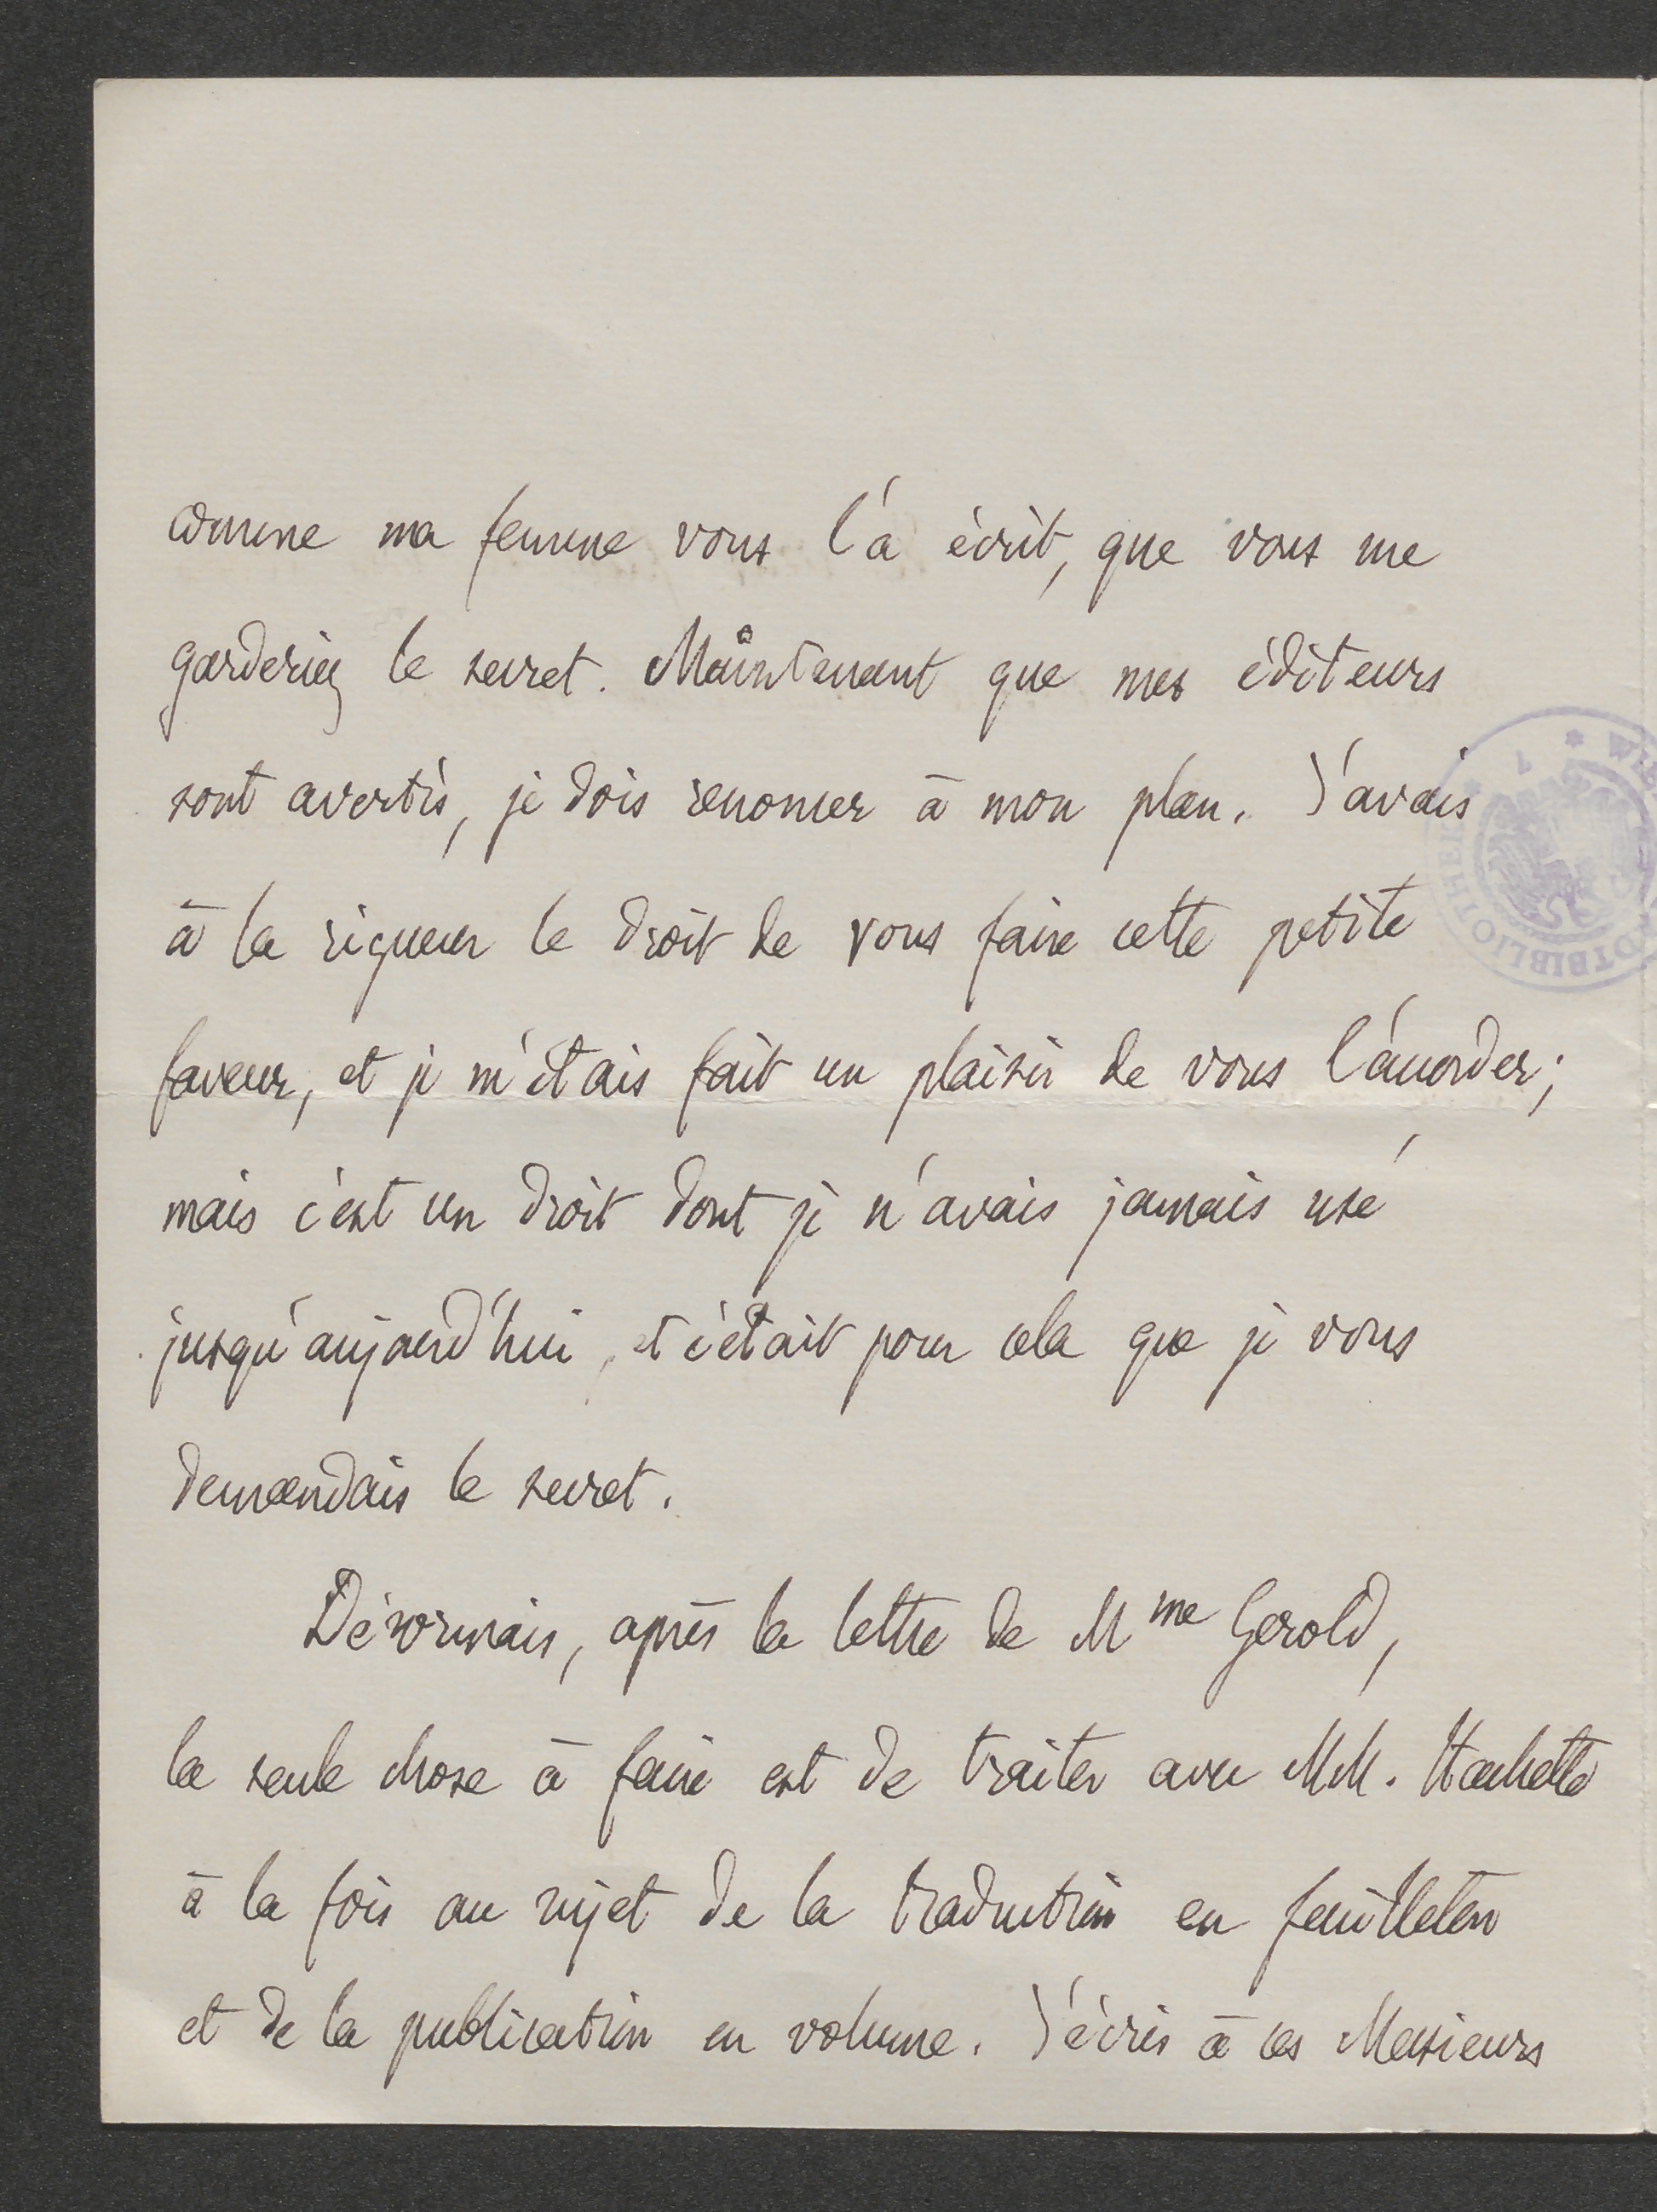 comme ma femme vous l'a écrit, que vous me
garderiez le secret. Maintenant que mes éditeurs
sont avertis, je dois renoncer à mon plan. J'avais
à la rigueur le droit de vous faire cette petite
faveur, et je m'étais fait un plaisir de vous l'accorder;
mais c'est un droit dont je n'avais jamais usé
jusqu'aujourd'hui, et c'était pour cela que je vous
demandais le secret.
Désormais, après la lettre de Mme Gerold,
la seule chose à faire est de traiter avec MM. Hachette
à la fois au sujet de la traduction en feuilleton
et de la publication en volume. J'écris à ces Messieurs